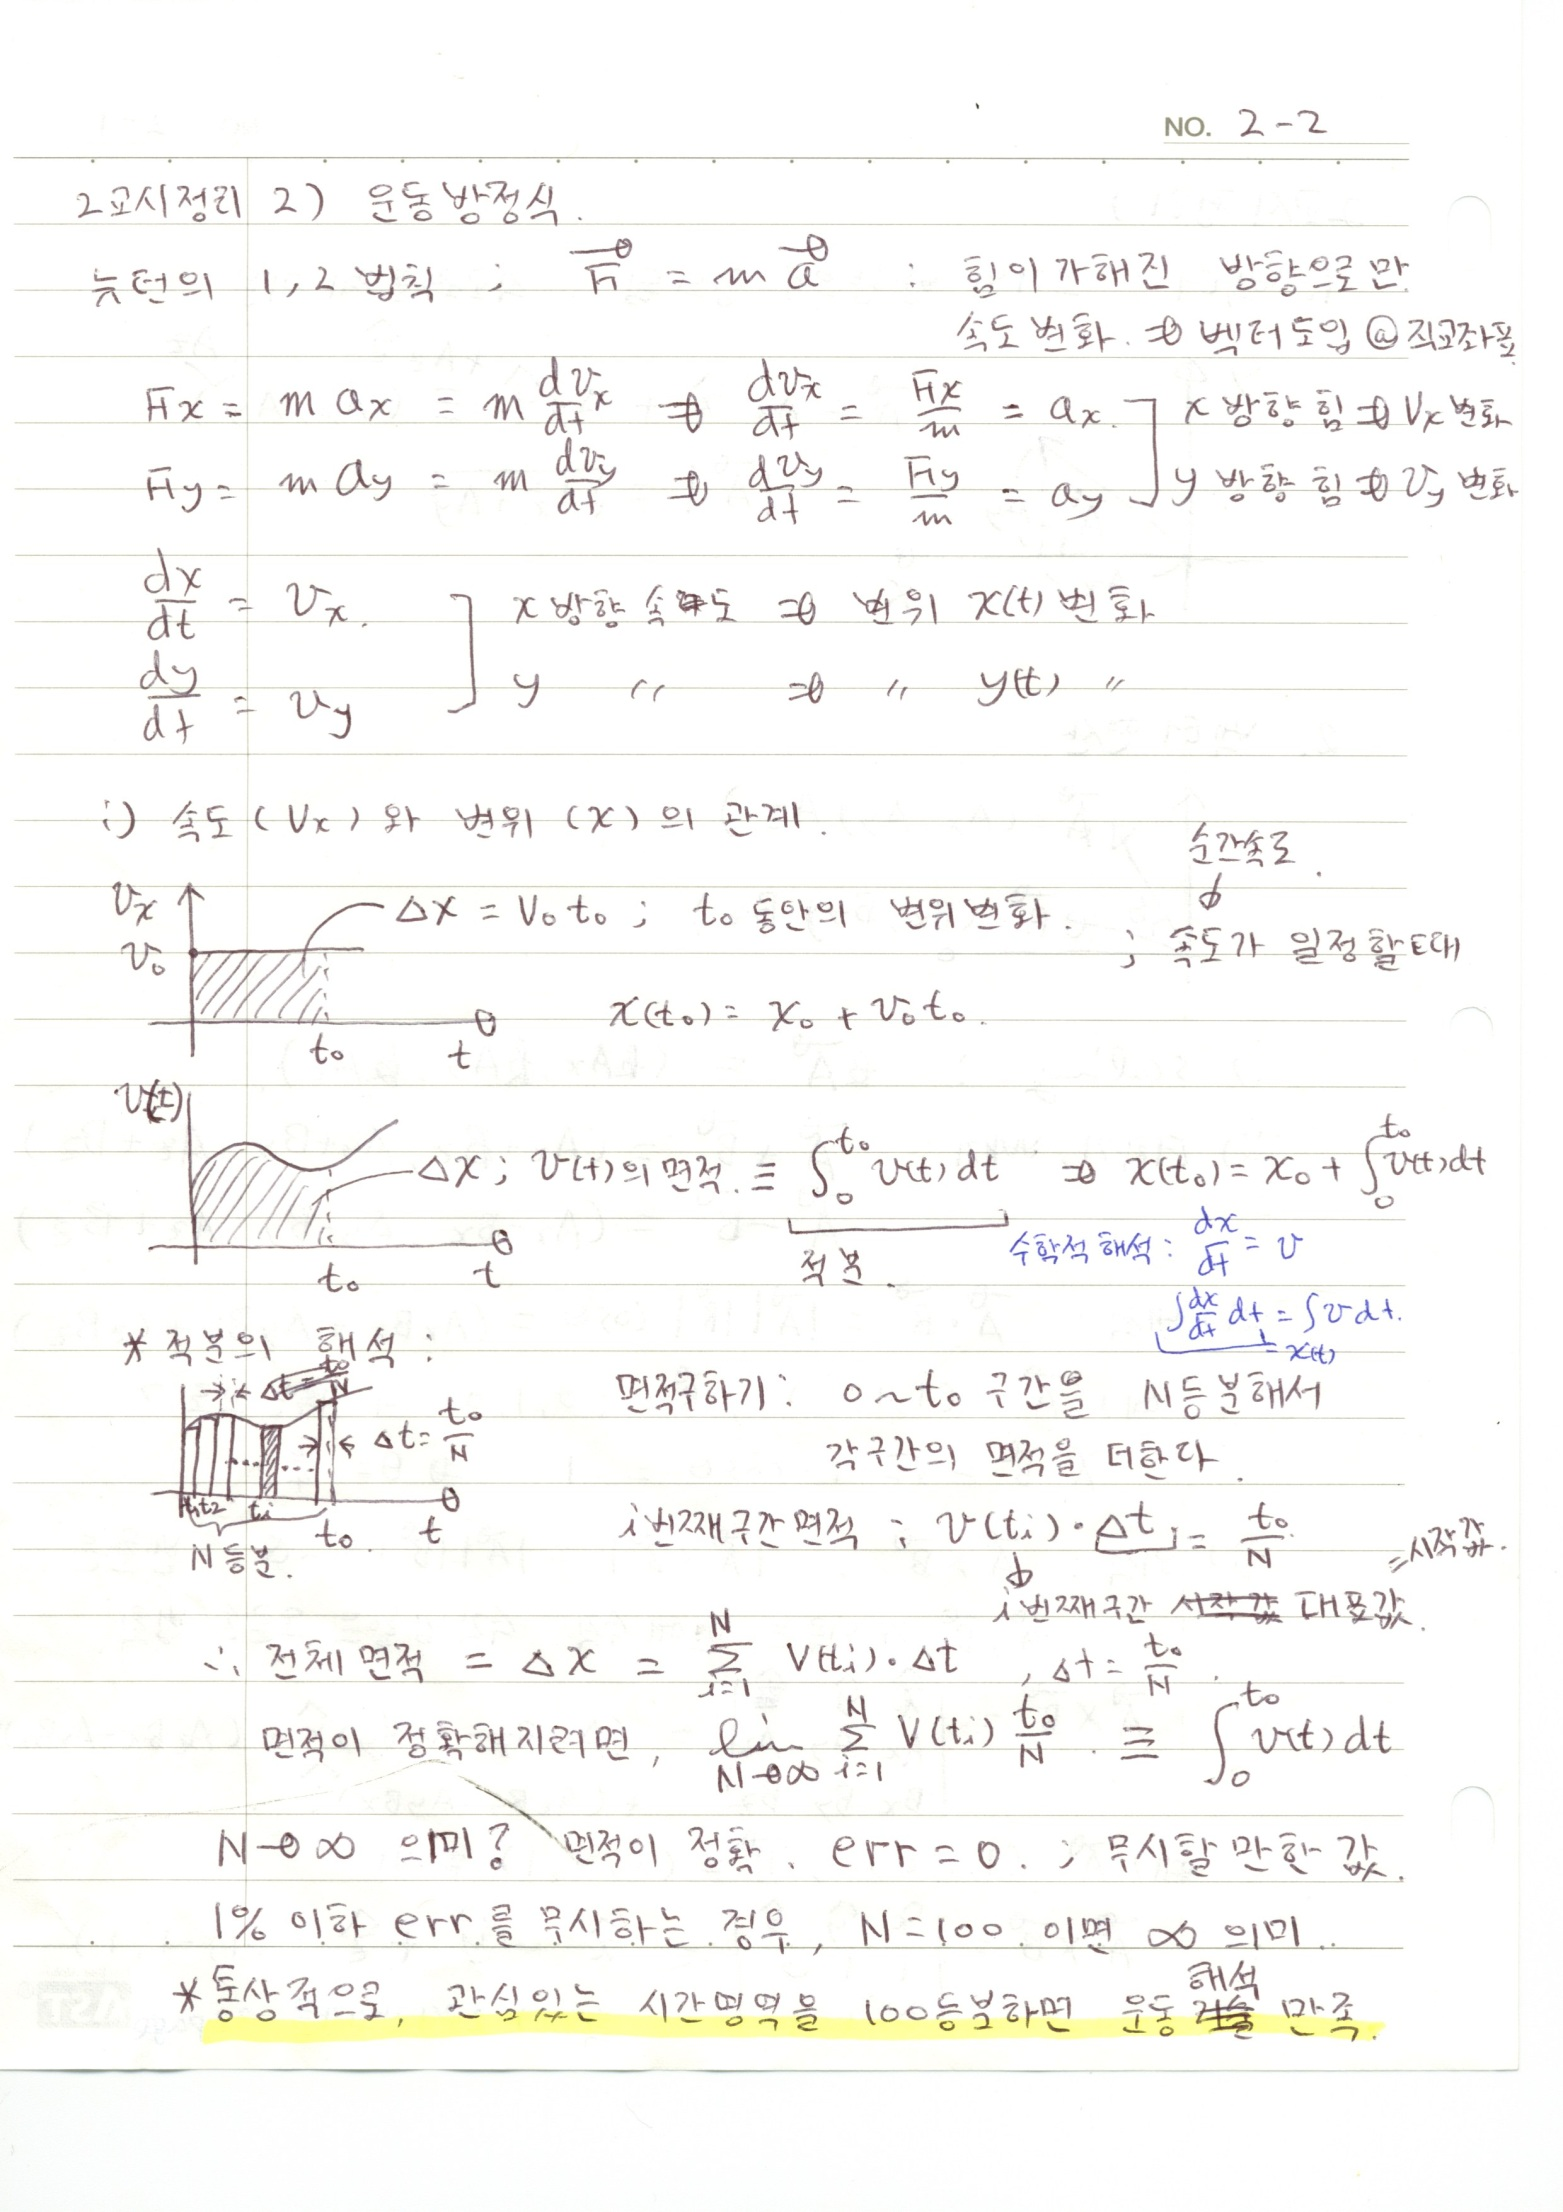 NO. 2-2
2교시정리 2) 운동방정식.
뉴턴의 1,2법칙 ; F⃗ = m a⃗ : 힘이 가해진 방향으로만
속도변화. ⇒ 벡터도입 @ 직교좌표
Fx = m ax = m dvx/dt ⇒ dvx/dt = Fx/m = ax. ] x 방향 힘 ⇒ Vx 변화
Fy = m ay = m dvy/dt ⇒ dvy/dt = Fy/m = ay ] y 방향 힘 ⇒ vy 변화
dx/dt = vx. ] x 방향 속도 ⇒ 변위 x(t) 변화
dy/dt = vy ] y 〃 ⇒ 〃 y(t) 〃
i) 속도(Vx)와 변위(x)의 관계.
순간속도.
↓
vx Δx = V₀t₀ ; t₀ 동안의 변위변화. ; 속도가 일정할때
v₀
x(t₀) = x₀ + v₀t₀.
t₀ t
v(t)
Δx ; v(t)의 면적. ≡ ∫₀^t₀ v(t)dt ⇒ x(t₀) = x₀ + ∫₀^t₀ v(t)dt
적분. 수학적 해석 : dx/dt = v
t₀ t
∫dx/dt dt = ∫v dt.
= x(t)
* 적분의 해석 :
Δt = t₀/N
면적구하기 : 0~t₀ 구간을 N등분해서
Δt = t₀/N
각구간의 면적을 더한다.
t₁ t₂ ti t₀ t
N등분.
i번째구간면적 ; v(ti)·Δt = t₀/N
↓ = 시작값.
i번째구간 시작값 대표값.
∴ 전체면적 = Δx = Σ_{i=1}^{N} V(ti)·Δt , Δt = t₀/N.
면적이 정확해지려면, lim_{N→∞} Σ_{i=1}^{N} V(ti) t₀/N. ≡ ∫₀^t₀ v(t)dt
N→∞ 의미? 면적이 정확. err = 0. ; 무시할 만한 값.
1% 이하 err를 무시하는 경우, N=100 이면 ∞ 의미..
해석
* 통상적으로, 관심있는 시간영역을 100등분하면 운동 만족.